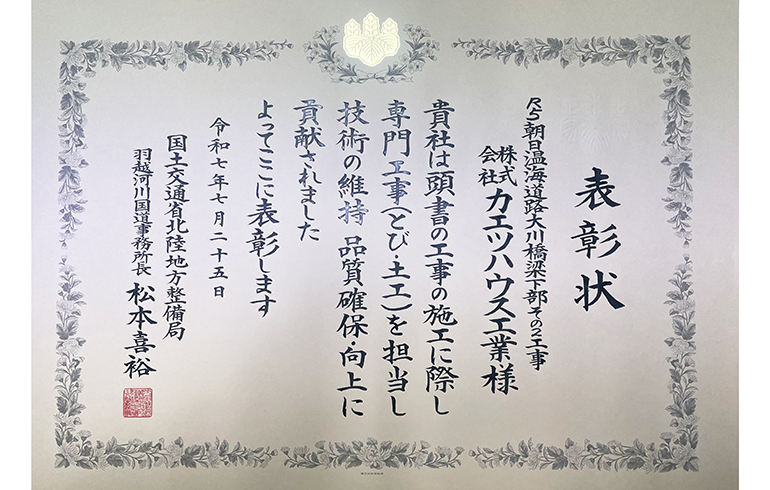 表彰状
R5朝日温海道路大川橋梁下部その2工事
株式会社カエツハウス工業様
貴社は頭書の工事の施工に際し
専門工事(とび・土工)を担当し
技術の維持 品質確保・向上に
貢献されました
よってここに表彰します
令和七年七月二十五日
国土交通省北陸地方整備局
羽越河川国道事務所長 松本喜裕